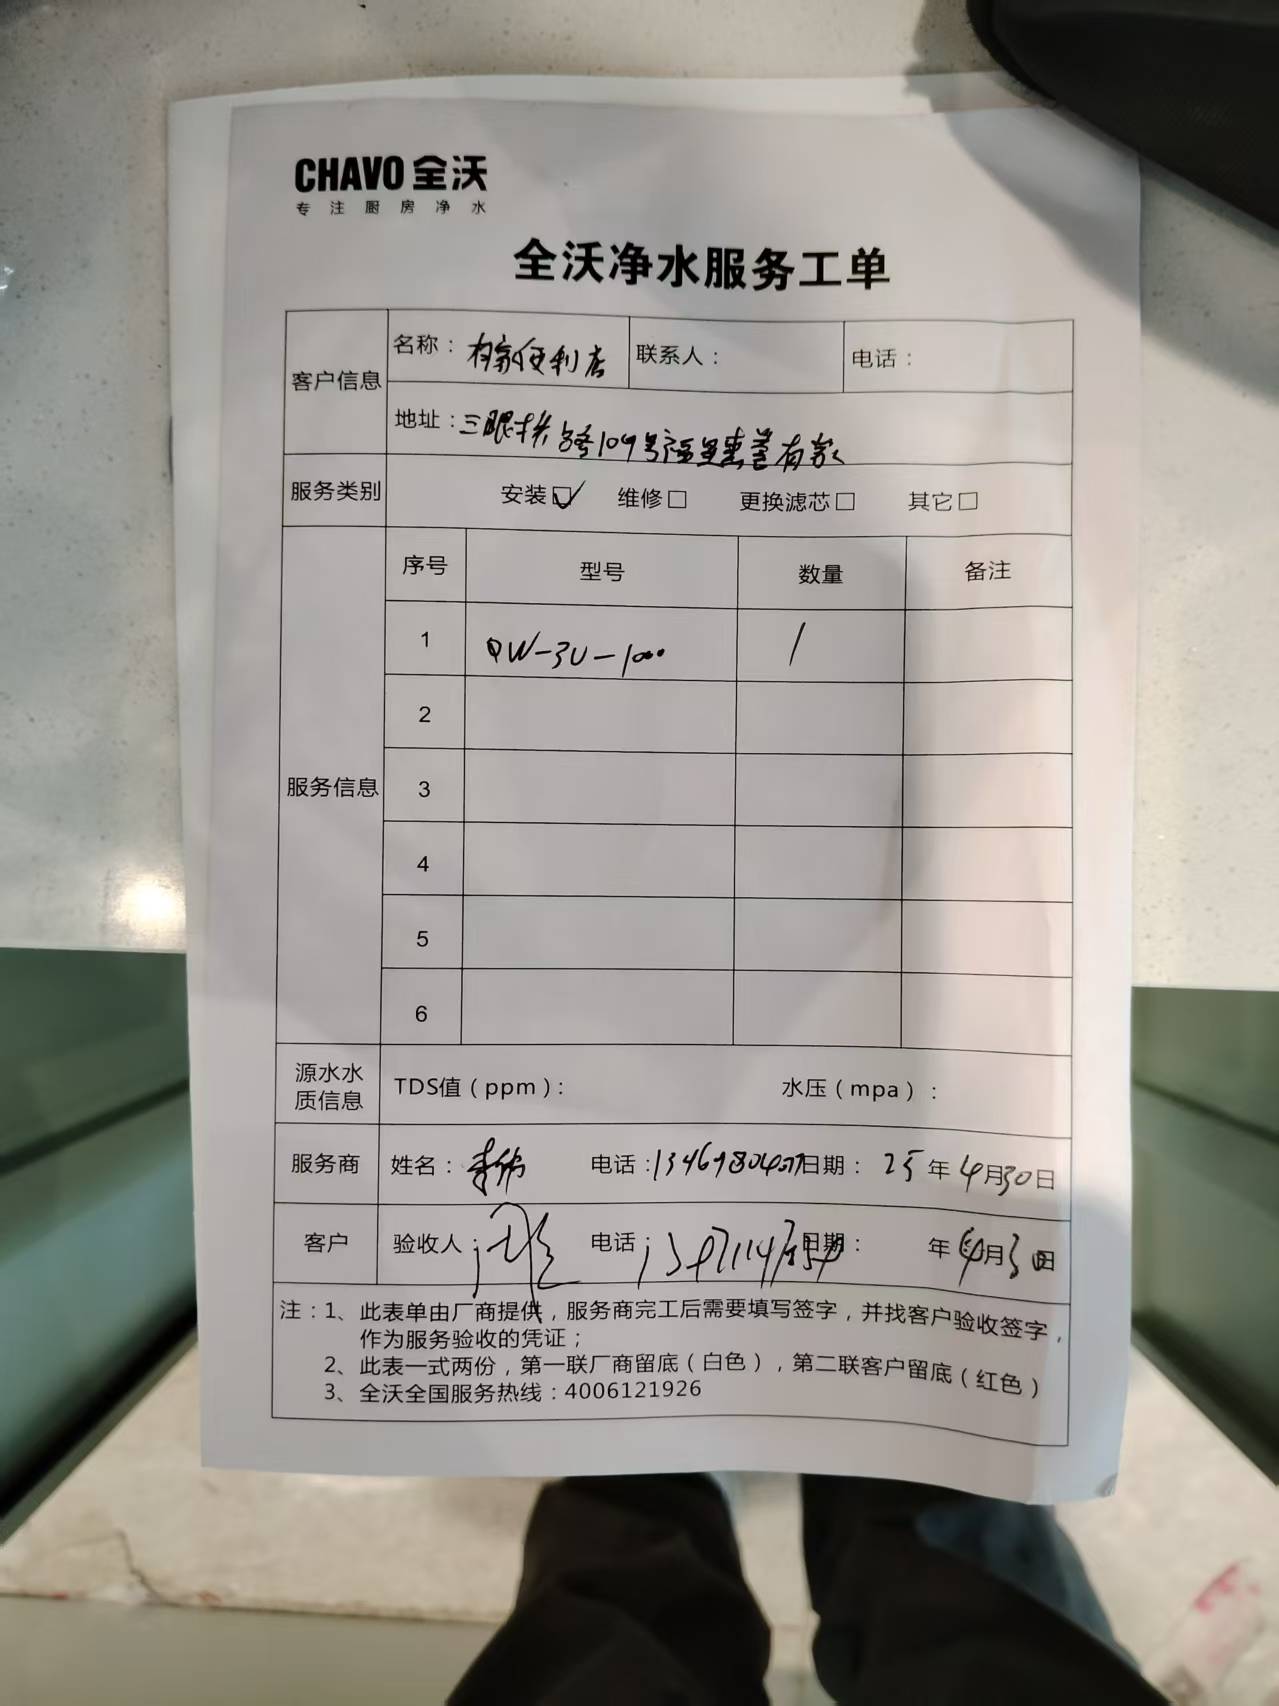 CHAVO 全沃
专注厨房净水
全沃净水服务工单
客户信息
名称：有家便利店 联系人： 电话：
地址：三眼桥路109号福星惠誉有家
服务类别 安装☑ 维修□ 更换滤芯□ 其它□
服务信息
序号 型号 数量 备注
1 QW-3U-1000 1
2
3
4
5
6
源水水质信息 TDS值（ppm）： 水压（mpa）：
服务商 姓名：李伟 电话： 日期：25年4月30日
客户 验收人： 电话： 日期： 年4月30日
注：1、此表单由厂商提供，服务商完工后需要填写签字，并找客户验收签字，
作为服务验收的凭证；
2、此表一式两份，第一联厂商留底（白色），第二联客户留底（红色）
3、全沃全国服务热线：4006121926